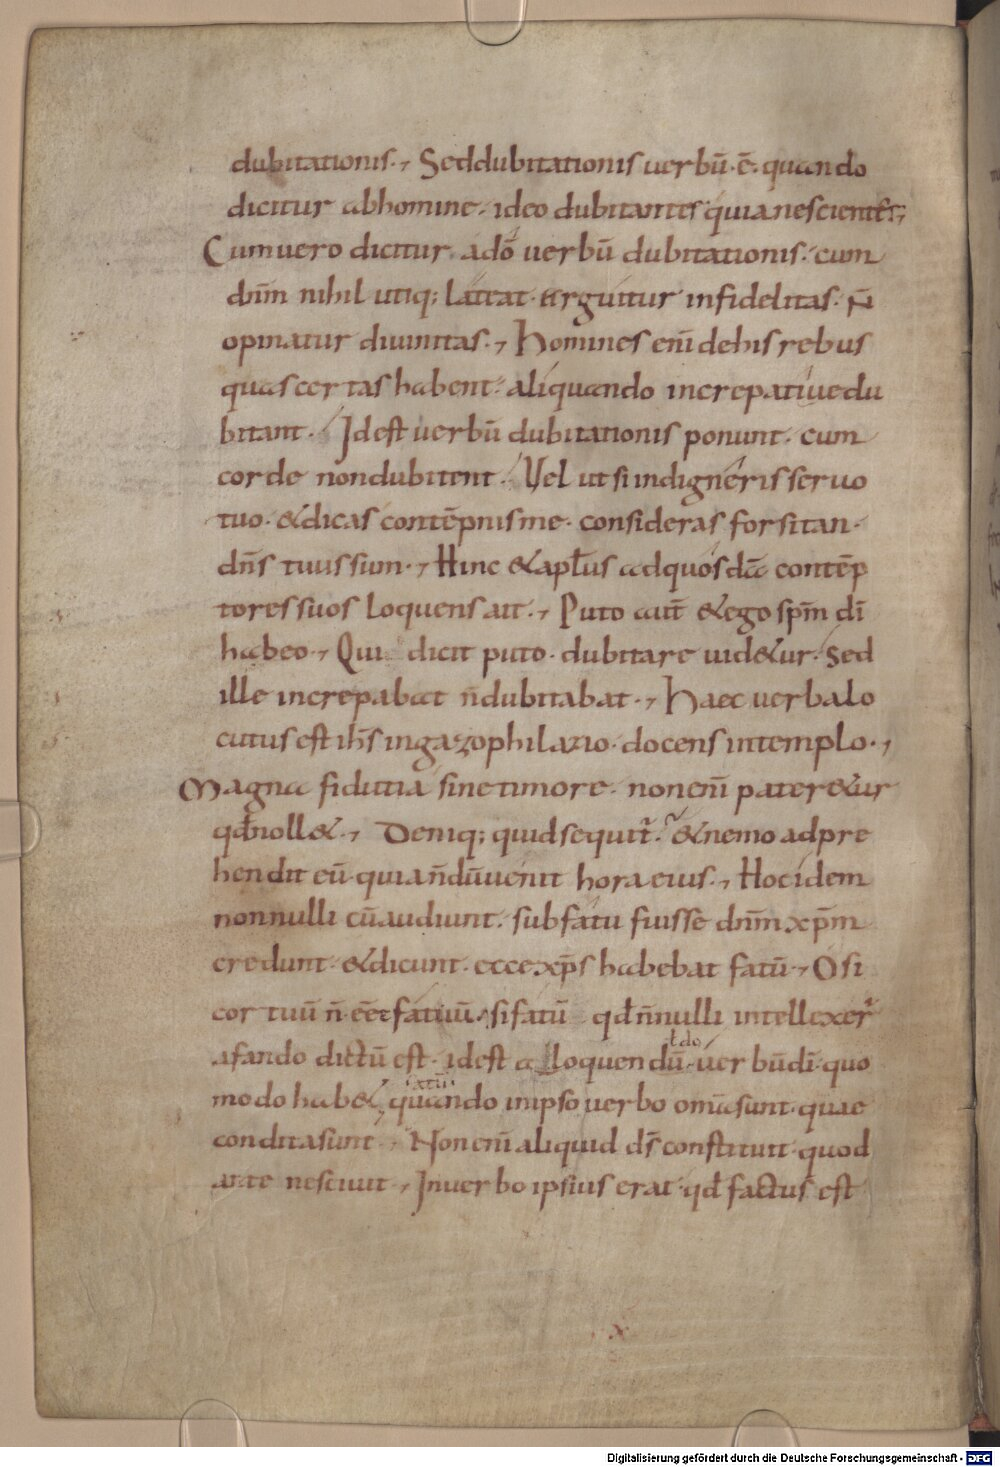 dubitationis·, Sed dubitationis uerbū·ē·quando
dicitur ab homine· ideo dubitantis quia nescientis;
Cum uero dicitur a dō uerbū dubitationis· cum
dn̄m nihil utiq; lateat· arguitur infidelitas· N̄
opinatur diuinitas·, Homines eni̅ de his rebus
quas certas habent· aliquando increpatiue du
bitant· Id est uerbū dubitationis ponunt· cum
corde non dubitent· Uel ut si indigneris seruo
tuo· &dicas contēpnis me· consideras forsitan·
dn̄s tuus sum·, Hinc &apƚus ad quosdā contēp
tores suos loquens ait·, Puto aut̄ &ego sp̄m dī
habeo·, Qui dicit puto· dubitare uid&ur· Sed
ille increpabat n̄ dubitabat·, Haec uerba lo
cutus est ih̄s in gazophilazio· docens in templo·,
Magna fidutia sine timore· non eni̅ pater&ur
qđ noll&·, Deniq; quid sequit̄· &nemo adpre
hendit eū· quia n̄dū uenit hora eius·, Hoc idem
nonnulli cū audiunt· sub fatu fuisse dn̄m xp̄m
credunt· &dicunt· ecce xp̄s habebat fatū·, O si
cor tuū n̄ eēt fatuū· si fatū qđ n̄nulli intellexer̄
a fando dictū est· id est a loquendū·uerbū dī·quo
ƚdo
modo hab& quando in ipso uerbo om̄a sunt· quae
fatū
condita sunt·, Non eni̅ aliquid ds̄ constituit· quod
ante nesciuit·, In uerbo ipsius erat· qđ factus est
Digitalisierung gefördert durch die Deutsche Forschungsgemeinschaft - DFG